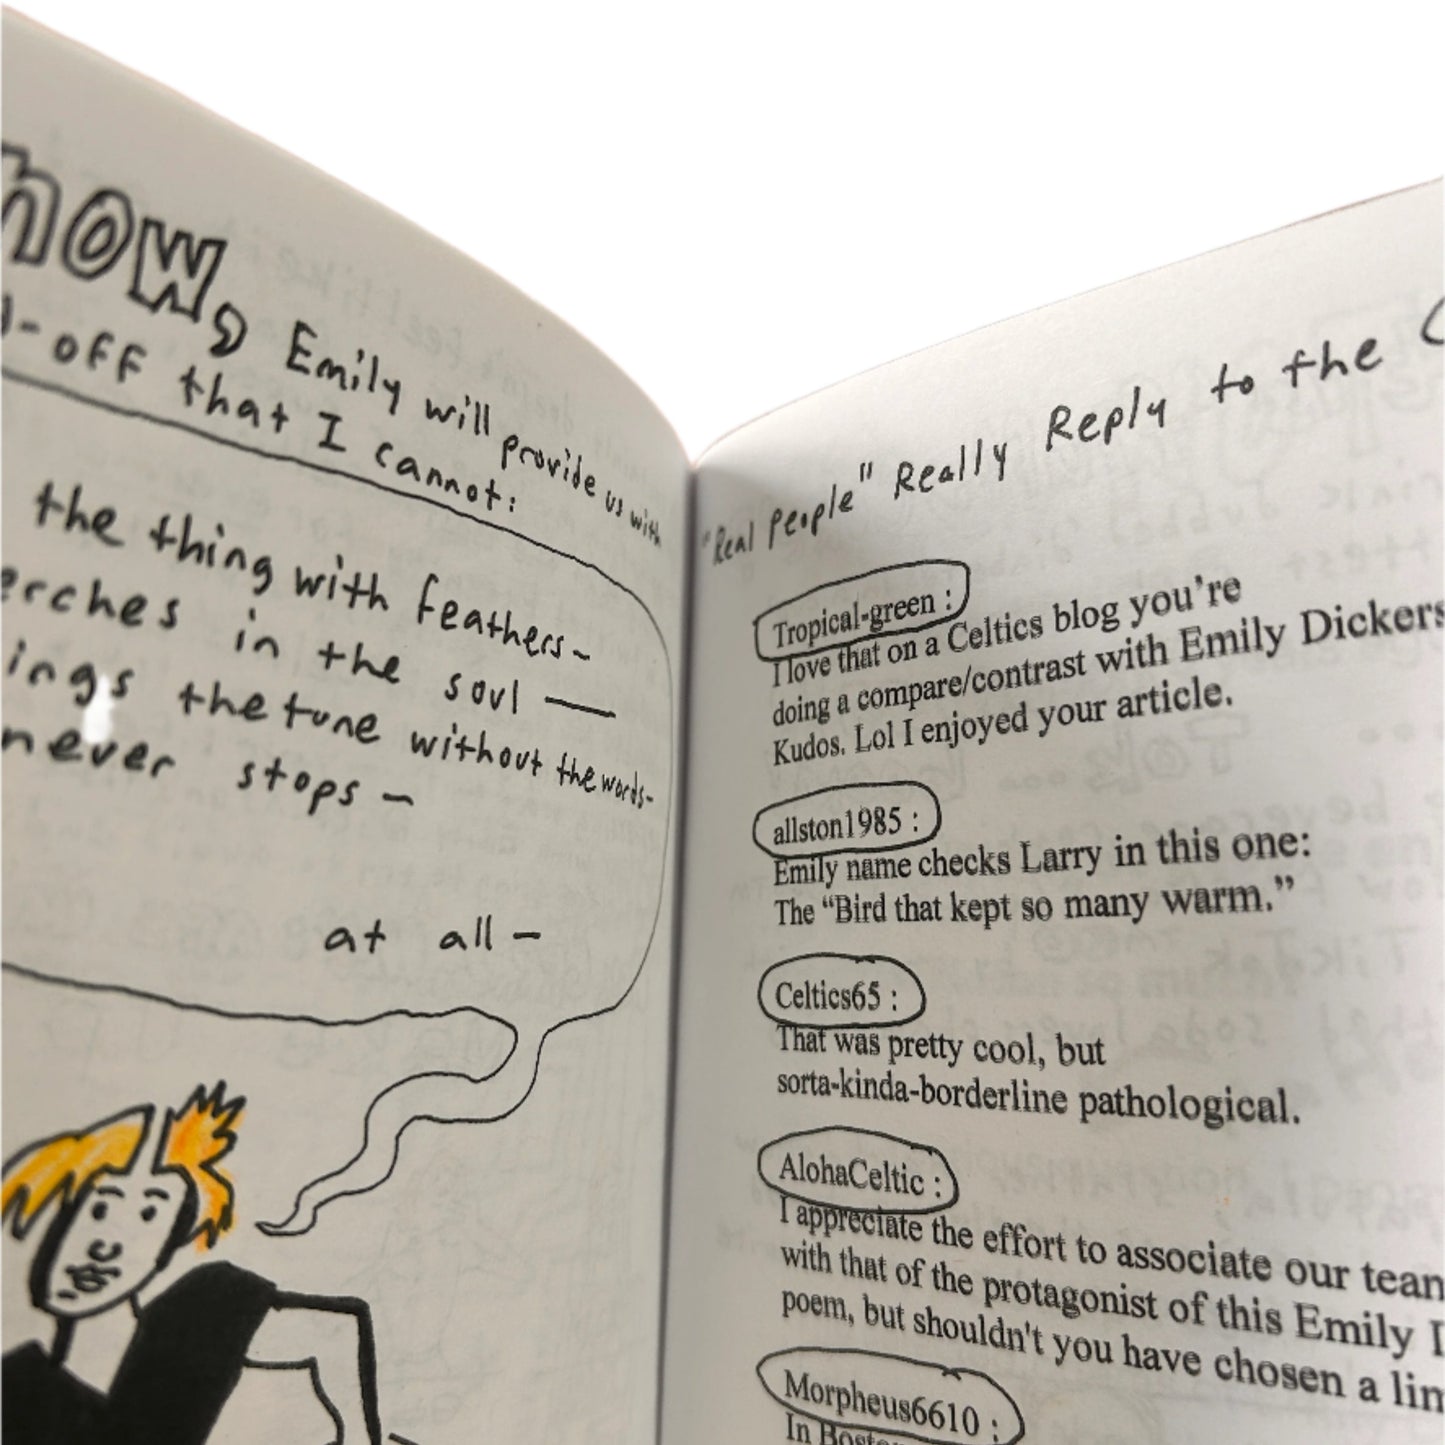 now, Emily will provide us with
-off that I cannot:
the thing with feathers-
erches in the soul —
ings the tune without the words-
never stops -
at all -
"Real People" Really Reply to the
Tropical-green :
I love that on a Celtics blog you're
doing a compare/contrast with Emily Dickers
Kudos. Lol I enjoyed your article.
allston1985 :
Emily name checks Larry in this one:
The “Bird that kept so many warm.”
Celtics65 :
That was pretty cool, but
sorta-kinda-borderline pathological.
AlohaCeltic :
I appreciate the effort to associate our team
with that of the protagonist of this Emily
poem, but shouldn't you have chosen a lim
Morpheus6610 :
In Bosto